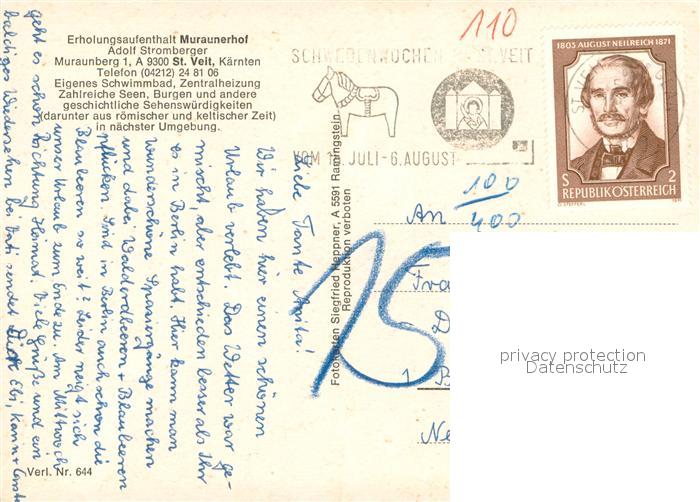 Erholungsaufenthalt Muraunerhof
Adolf Stromberger
Muraunberg 1, A 9300 St. Veit, Kärnten
Telefon (04212) 24 81 06
Eigenes Schwimmbad, Zentralheizung
Zahlreiche Seen, Burgen und andere
geschichtliche Sehenswürdigkeiten
(darunter aus römischer und keltischer Zeit)
in nächster Umgebung.
110
SCHWEDENWOCHEN ST. VEIT
VOM JULI - 6. AUGUST
1803 AUGUST NEILREICH 1871
S 2
REPUBLIK ÖSTERREICH
Liebe Tante Anita!
Wir haben hier einen schönen
Urlaub verlebt. Das Wetter war ge-
mischt, aber entschieden besser als Ihr
es in Berlin habt. Hier kann man
wunderschöne Spaziergänge machen
und dabei Walderdbeeren + Blaubeeren
pflücken. Sind in Berlin auch schon die
Blaubeeren so weit? Leider neigt sich
unser Urlaub zum Ende zu. Am Mittwoch
geht es schon Richtung Heimat. Viele Grüße und ein
baldiges Wiedersehen bei Vati sendet Dir
Fotohaus Siegfried Neppner, A 5591 Ramingstein
Reproduktion verboten
100
400
15
An
Fra
D
1 B
Ne
privacy protection
Datenschutz
Verl. Nr. 644